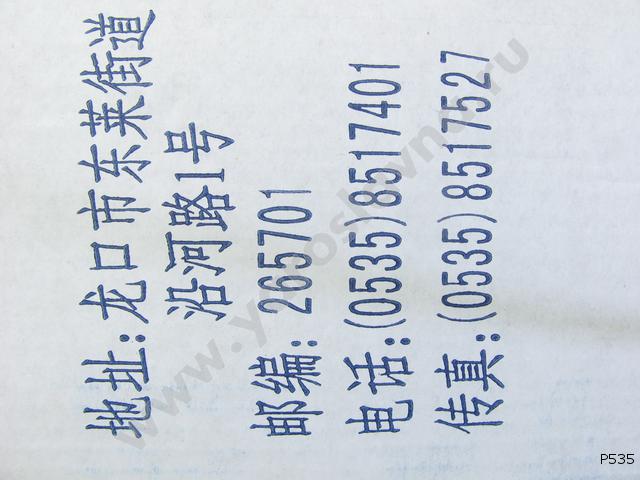 地址:龙口市东莱街道
沿河路1号
邮编: 265701
电话:(0535)8517401
传真:(0535)8517527
P535